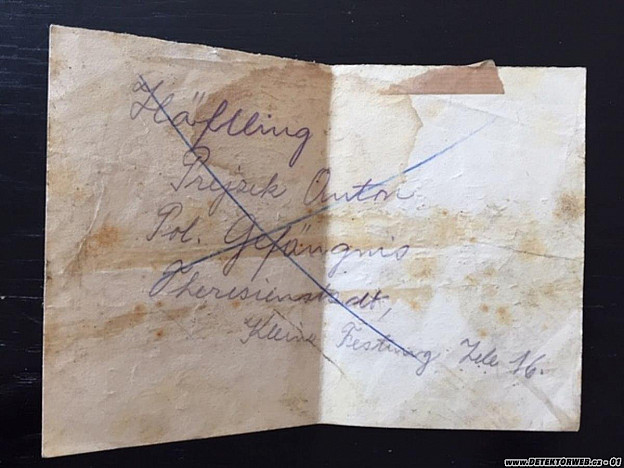 Häftling
Prejzek Anton
Pol. Gefängnis
Theresienstadt,
Kleine Festung Zele 16.
www.DETEKTORWEB.cz - 01